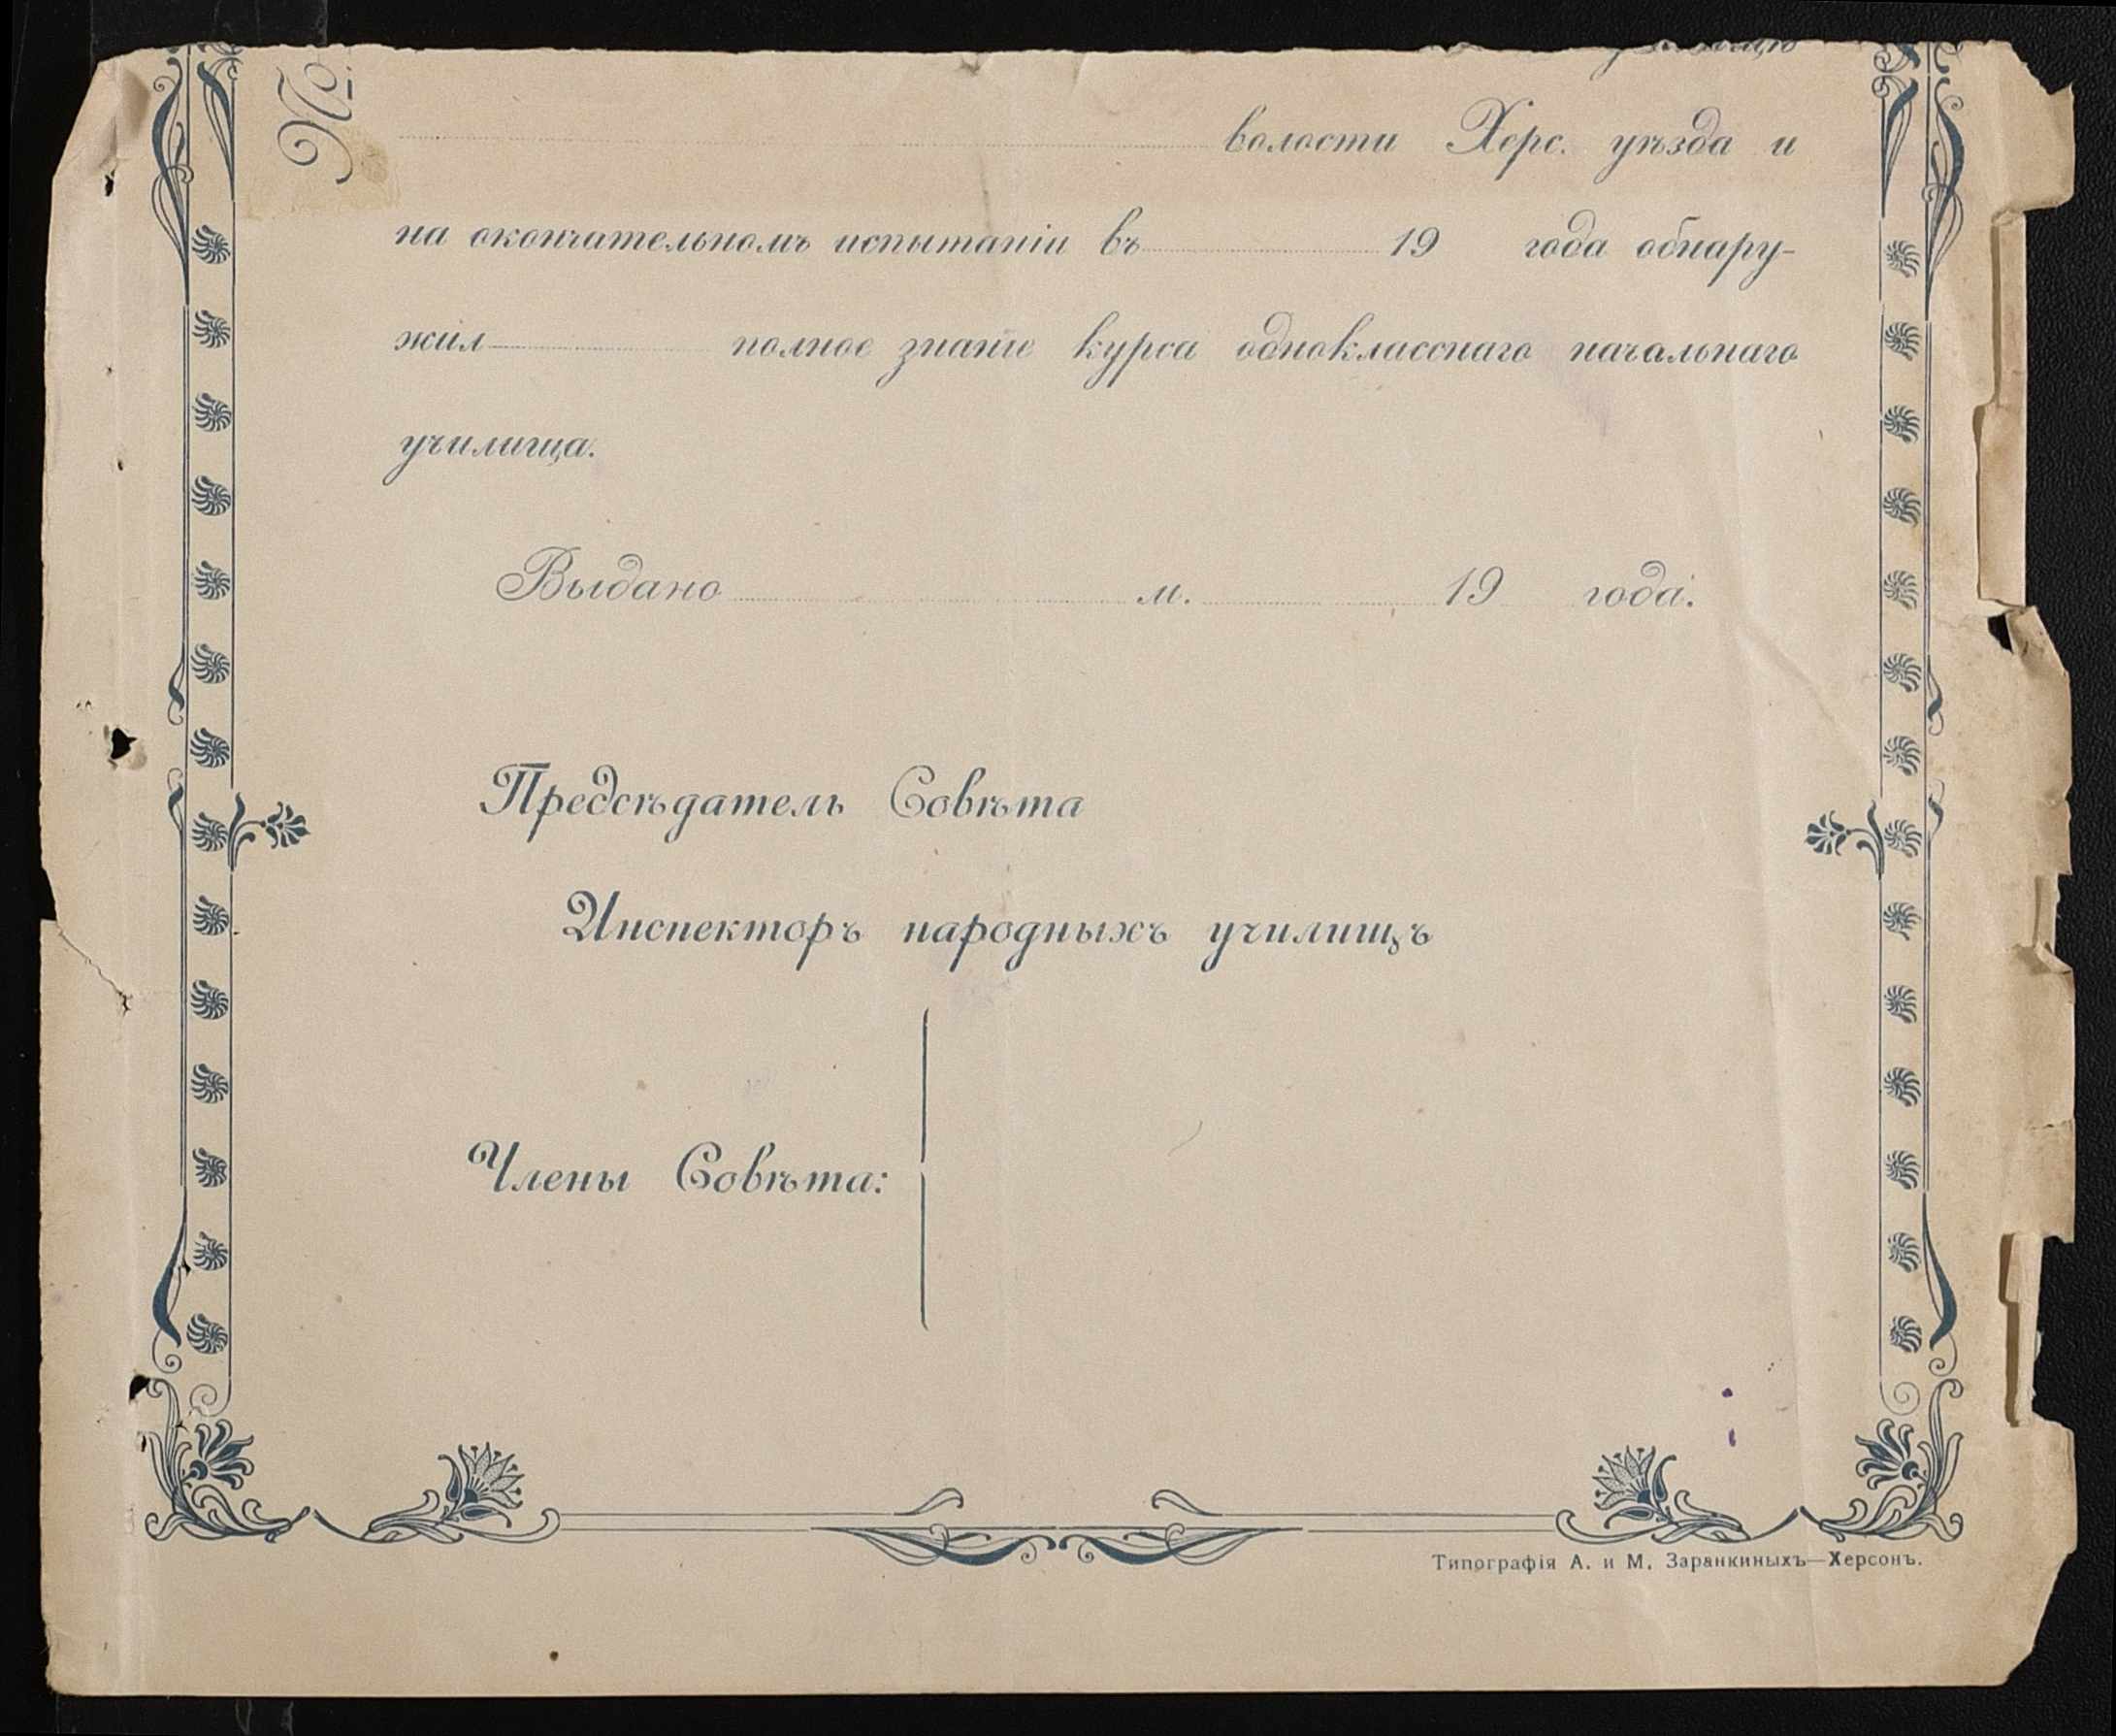 №
волости Херс. уѣзда и
на окончательномъ испытаніи въ 19 года обнару-
жил полное знаніе курса одноклассного начальнаго
училища.
Выдано м. 19 года.
Предсѣдатель Совѣта
Инспекторъ народныхъ училищъ
Члены Совѣта:
Типографія А. и М. Заранкиныхъ—Херсонъ.